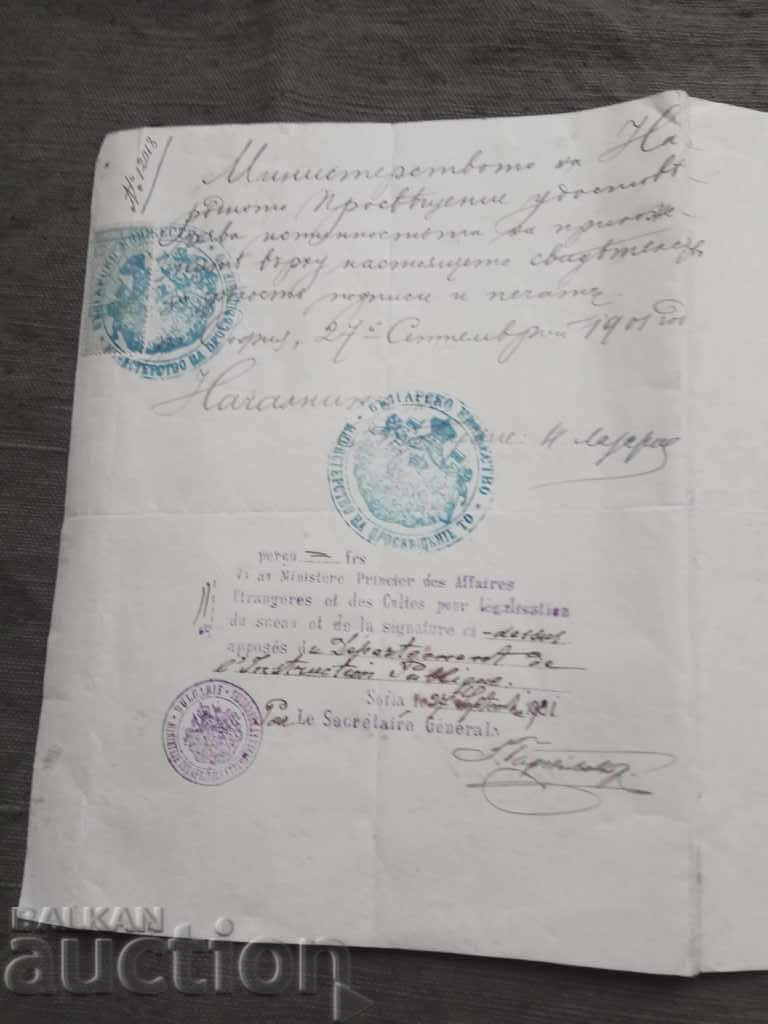 № 12013
Министерството на На-
родното Просвѣщение удостовѣ-
рява истинностьта на приложе-
върху настоящето свидѣтелство
подписи и печатъ.
София, 27й Септемврий 1901 год
Началникъ
БЪЛГАРСКО КНЯЖЕСТВО
МИНИСТЕРСТВО НА ПРОСВѢЩЕНИЕТО
perçu frs
Vu au Ministère Princier des Affaires
Etrangères et des Cultes pour légalisation
du sceau et de la signature ci-dessus
apposés du Département de
l'Instruction Publique.
Sofia 1901
Par Le Secrétaire Général
BULGARIE
BALKAN
auction